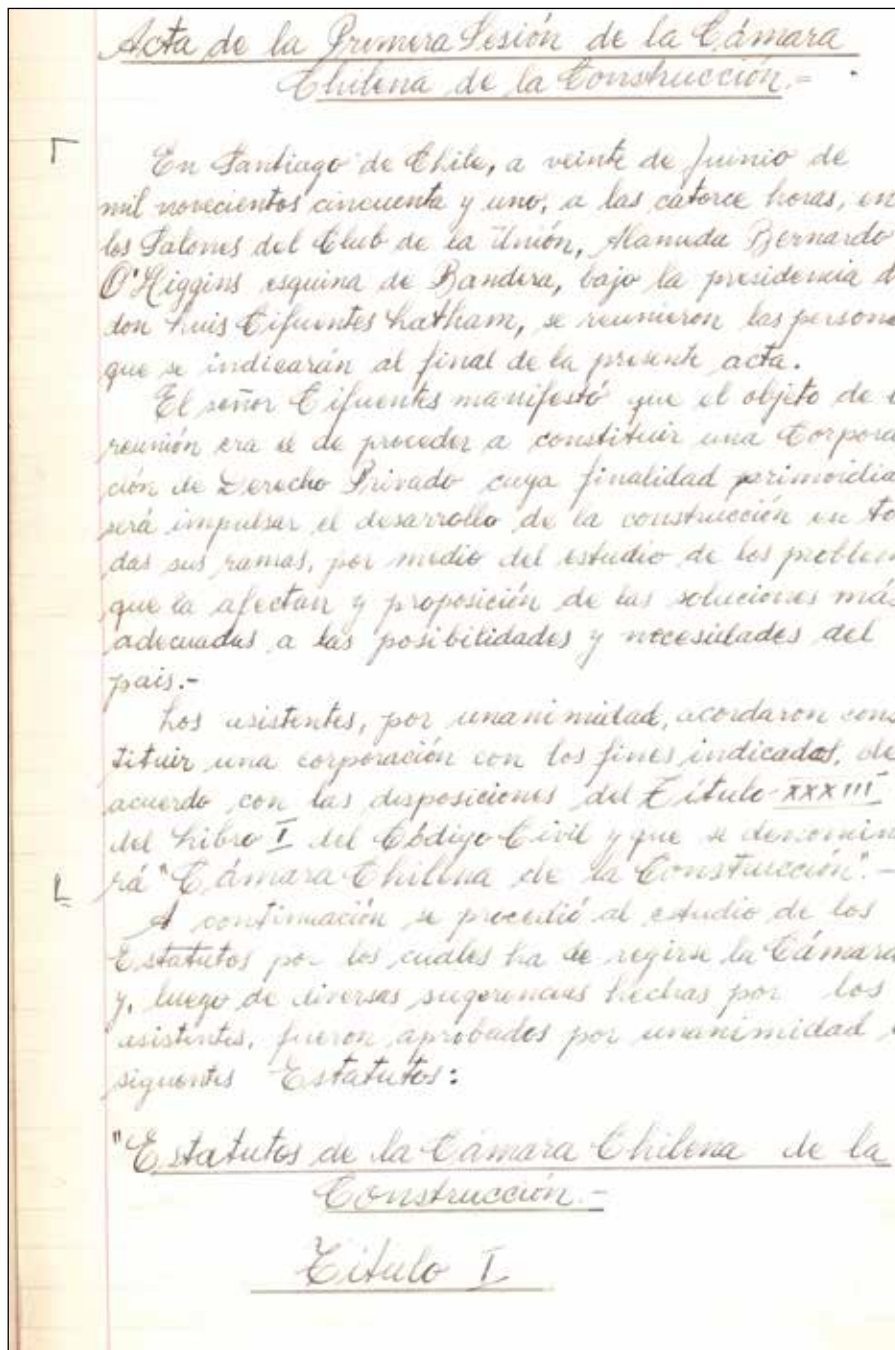 Acta de la Primera Sesión de la Cámara
Chilena de la Construcción.-
En Santiago de Chile, a veinte de Juinio de
mil novecientos cincuenta y uno, a las catorce horas, en
los Salones del Club de la Unión, Alameda Bernardo
O'Higgins esquina de Bandera, bajo la presidencia d
don Luis Cifuentes Latham, se reunieron las persona
que se indicarán al final de la presente acta.
El señor Cifuentes manifestó que el objeto de l
reunión era el de proceder a constituir una Corpora
ción de Derecho Privado cuya finalidad primordia
será impulsar el desarrollo de la construcción en to
das sus ramas, por medio del estudio de los problem
que la afectan y proposición de las soluciones más
adecuadas a las posibilidades y necesidades del
pais.-
Los asistentes, por unanimidad, acordaron cons
tituir una corporación con los fines indicados, de
acuerdo con las disposiciones del Título XXXIII
del Libro I del Código Civil y que se denomin
rá "Cámara Chilena de la Construcción".-
A continuación se procedió al estudio de los
Estatutos por los cuales ha de regirse la Cámara
y, luego de diversas sugerencias hechas por los
asistentes, fueron aprobados por unanimidad
siguentes Estatutos:
"Estatutos de la Cámara Chilena de la
Construcción.-
Título I